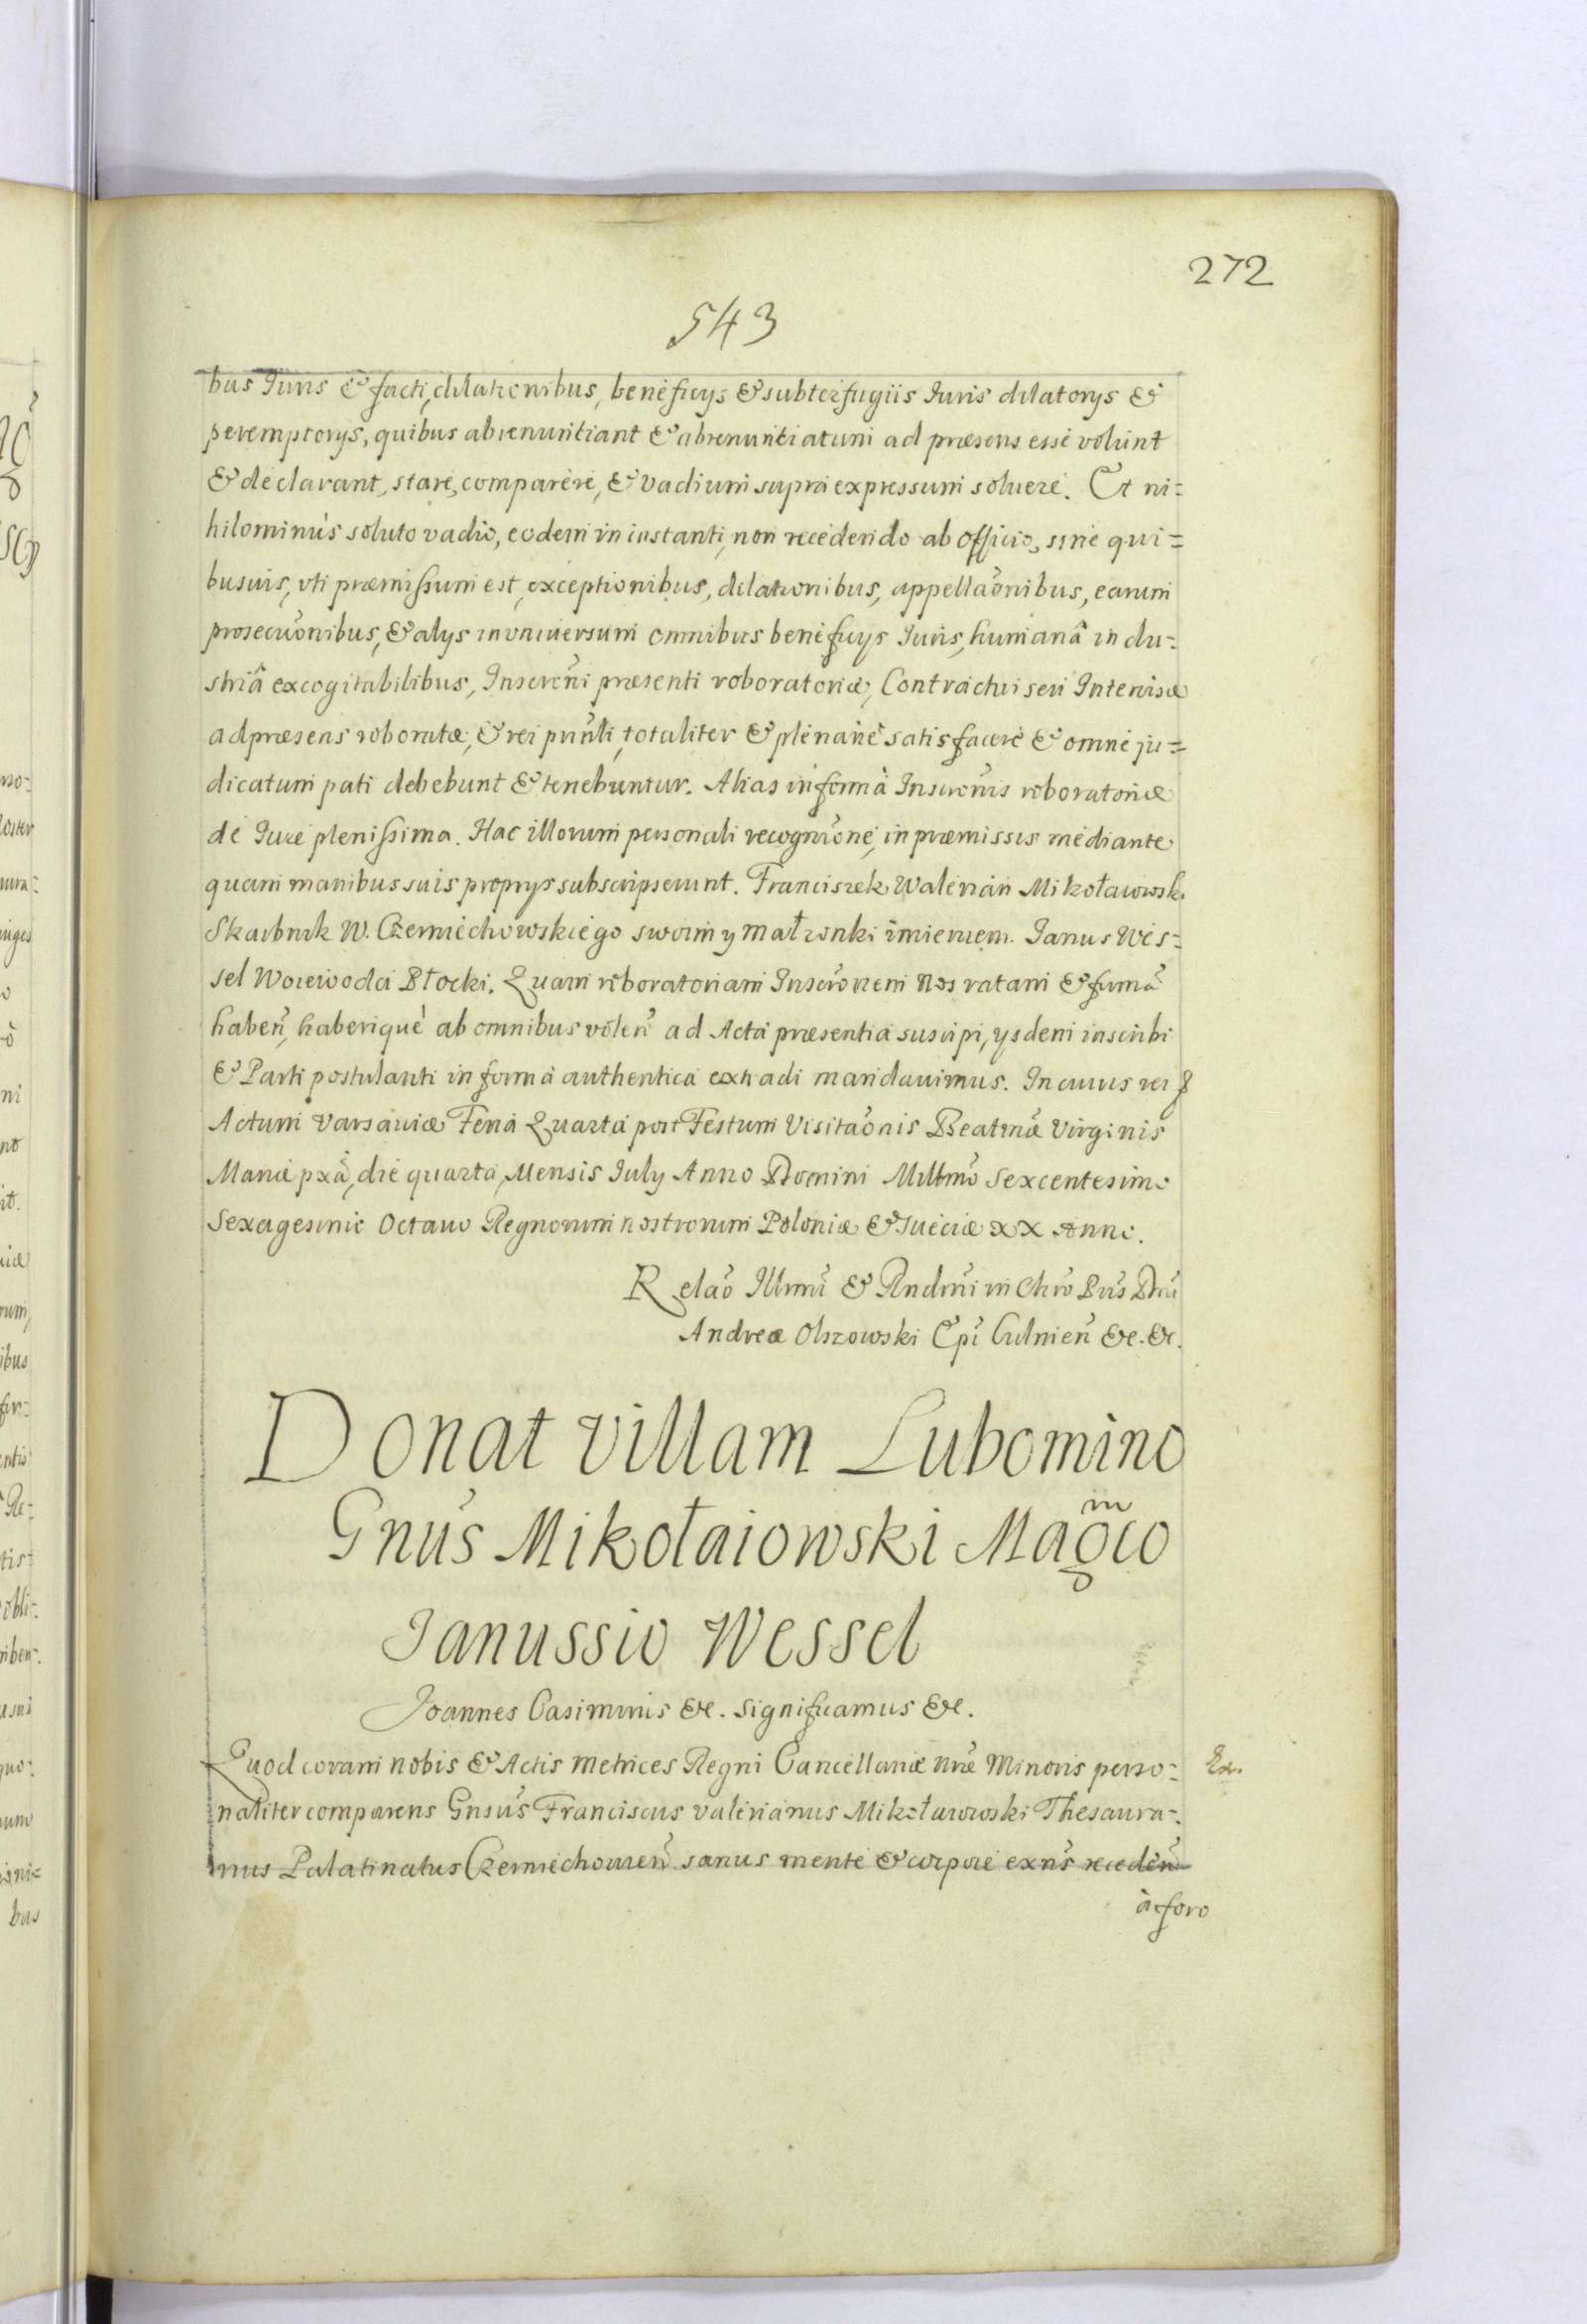 272
543
bus Iuris & facti, dilationibus, beneficys & subterfugiis Iuris dilatorys &
peremptorys, quibus abrenuntiant & abrenuntiatum ad præsens esse volunt
& declarant, stare, comparere, & vadium supra expressum soluere. Et ni=
hilominùs soluto vadio, eodem in instanti, non recedendo ab officio, sine qui=
busuis, vti præmissum est, exceptionibus, dilationibus, appellaõnibus, earum
prosecuõnibus, & alys in vniuersum omnibus beneficys Iuris, humanâ indu=
striâ excogitabilibus, Inscrõni præsenti roboratoriæ, Contractui seu Intercisæ
ad præsens roboratæ, & rei pñnti, totaliter & plenariè satisfacere & omne ju=
dicatum pati debebunt & tenebuntur. Alias in forma Inscrõnis roboratoriæ
de Iure plenissima. Hac illorum personali recogniõne, in præmissis mediante
quam manibus suis proprys subscripserunt. Franciszek Walerian Mikołaiowski
Skarbnik W. Czerniechowskiego swoim y małzonki imieniem. Ianus Wes=
sel Woiewoda Płocki. Quam roboratoriam Inscrõnem Nos ratam & firmã
habeñ, haberique ab omnibus voleñ ad Acta præsentia suscipi, ysdem inscribi
& Parti postulanti in forma authentica extradi mandauimus. In cuius rei
Actum Varsauiæ Feria Quarta post Festum Visitaõnis Beatmæ Virginis
Mariæ pxã, die quarta, Mensis July Anno Domini Millmõ Sexcentesimo
Sexagesimo Octauo Regnorum nostrorum Poloniæ & Sueciæ XX Anno.
Relaõ Illmi & Rndmi in Chrõ Pris Dni
Andreæ Olszowski Epĩ Culmeñ &c. &c.
Donat villam Lubomino
Gnüs Mikołaiowski Magco
Ianussio Wessel
Joannes Casimirus &c. Significamus &c.
Quod coram nobis & Actis Metrices Regni Cancellariæ nræ Minoris perso=
naliter comparens Gnsüs Franciscus Valerianus Mikołaiowski Thesaura=
rius Palatinatus Czerniechouieñ sanus mente & corpore exñs recedeñ
à foro